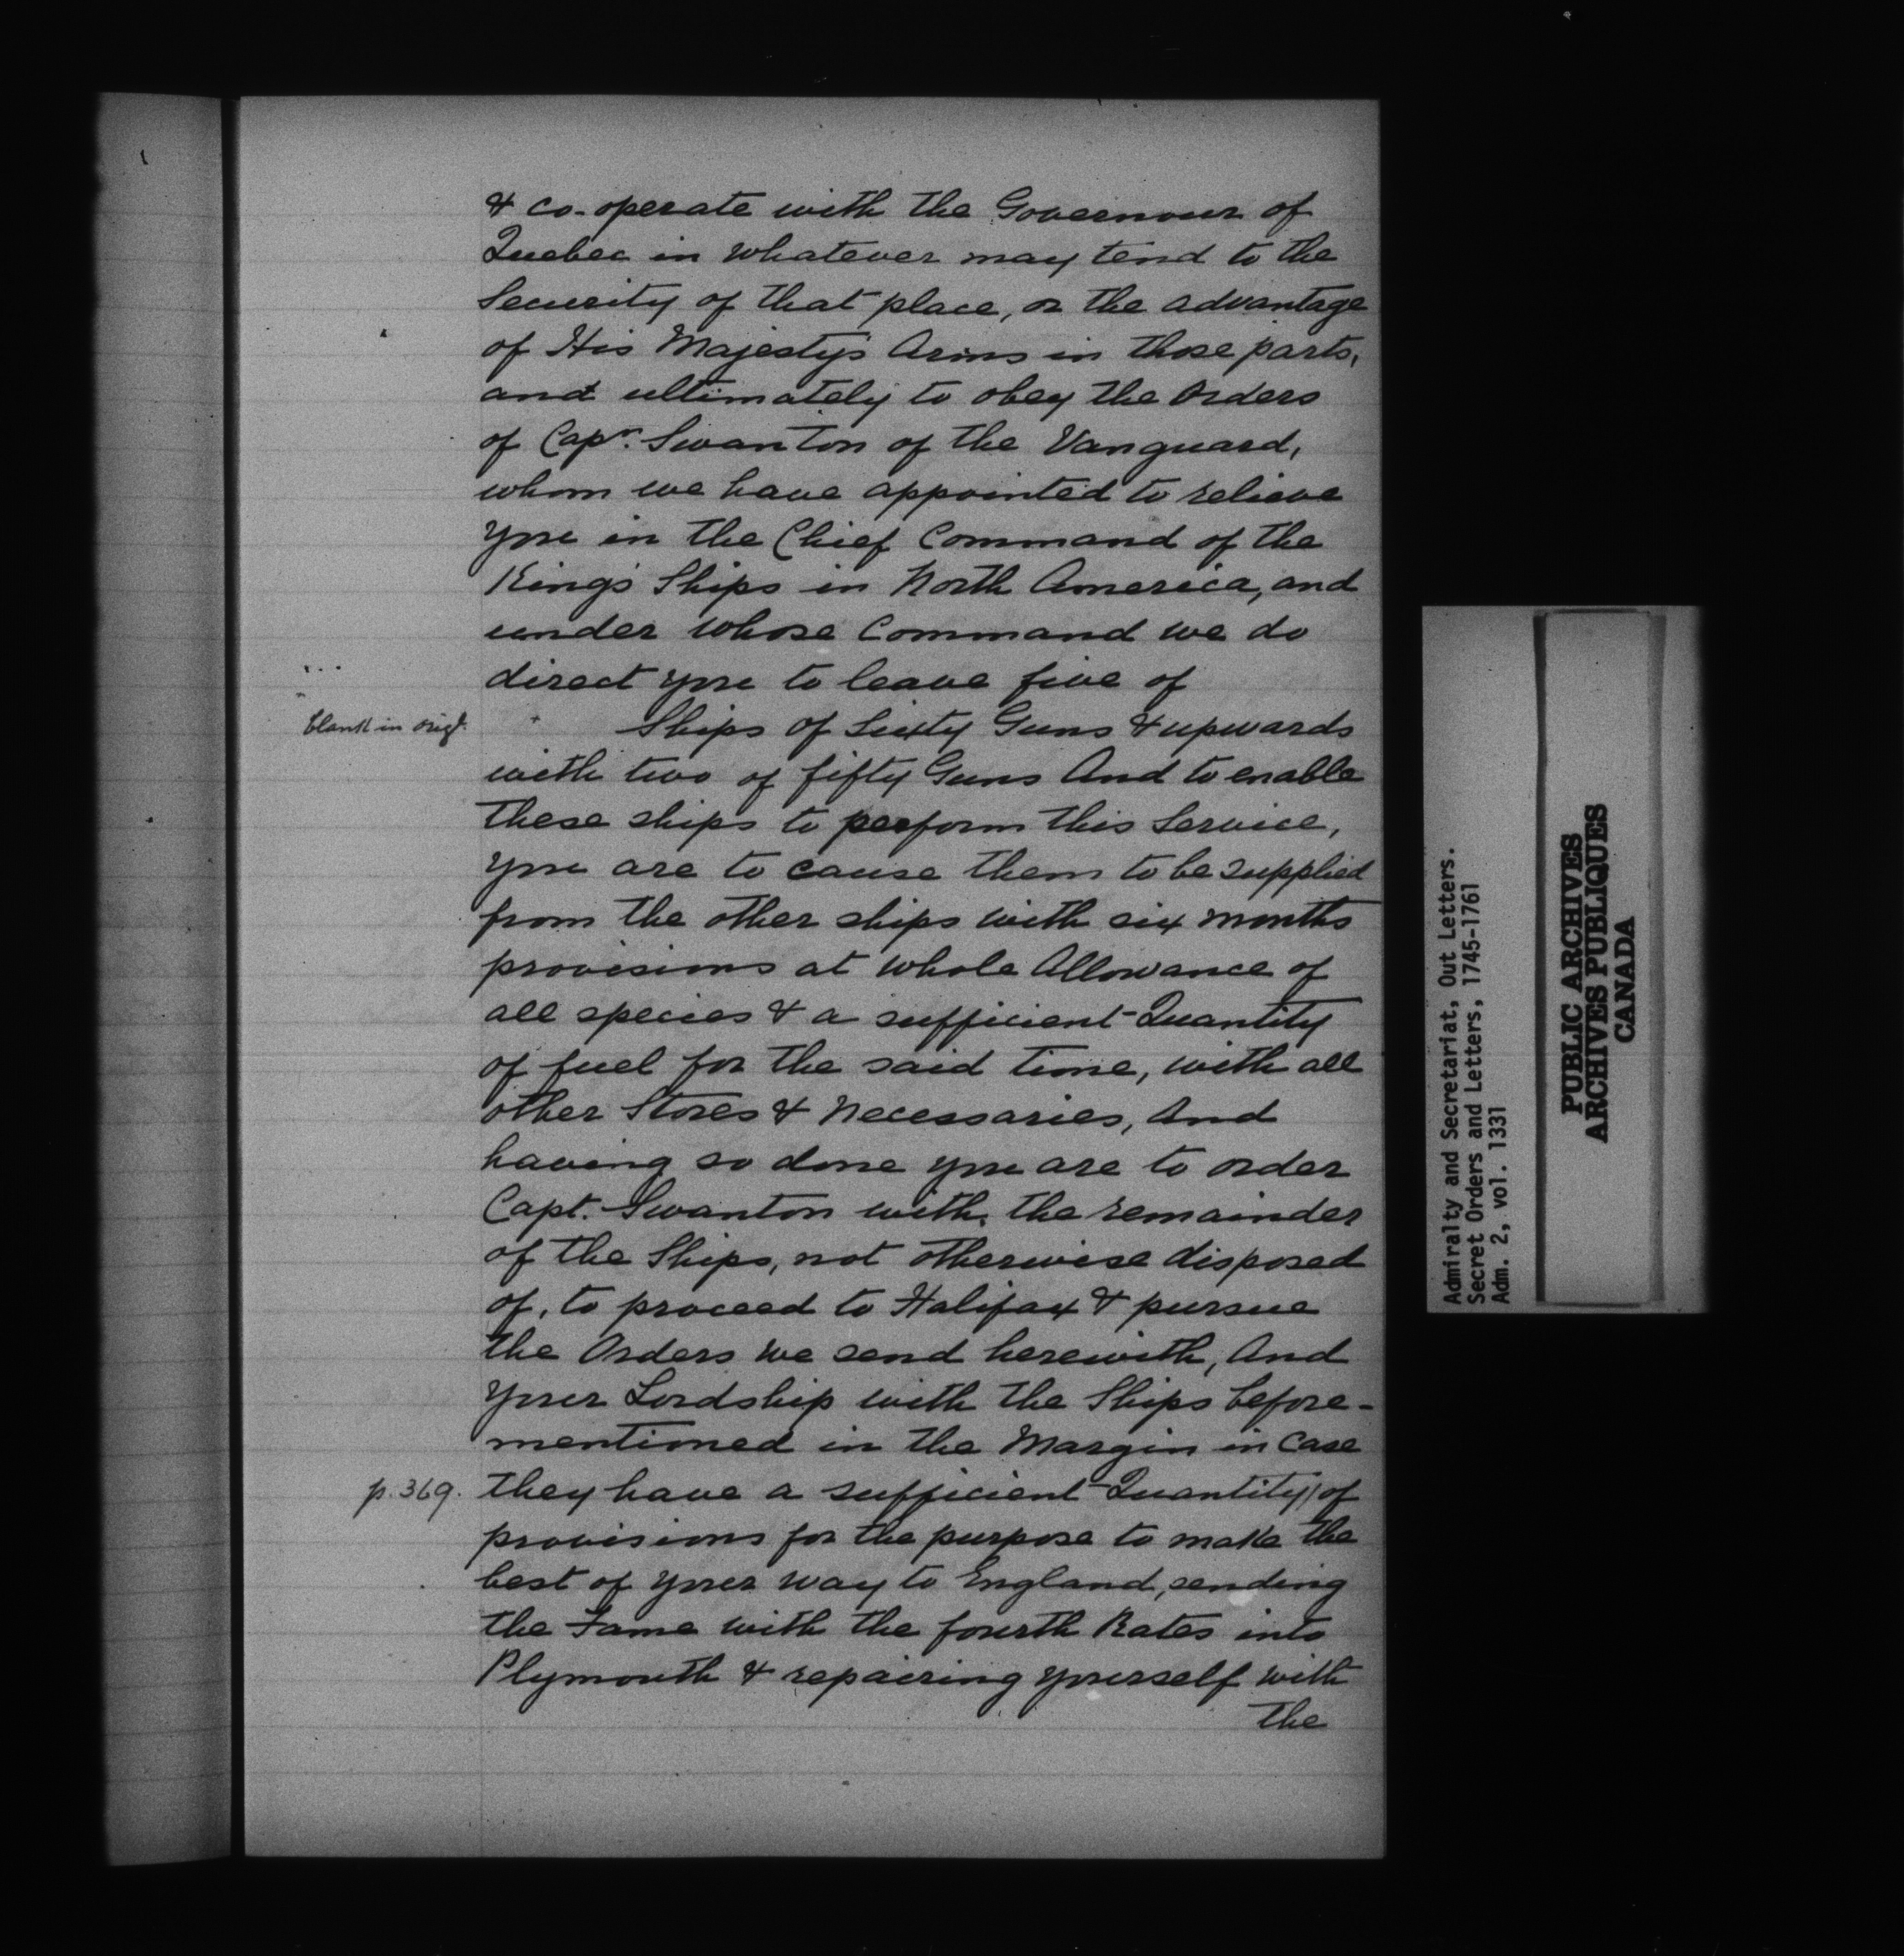 & co-operate with the Governour of
Quebec in whatever may tend to the
Security of that place, or the advantage
of His Majesty's Arms in those parts,
and ultimately to obey the Orders
of Capt. Swanton of the Vanguard,
whom we have appointed to relieve
you in the Chief Command of the
King's Ships in North America, and
under whose Command we do
direct you to leave five of
blank in origl. Ships of Sixty Guns & upwards
with two of fifty Guns And to enable
these ships to perform this Service,
you are to cause them to be supplied
from the other ships with six months
provisions at whole Allowance of
all species & a sufficient Quantity
of fuel for the said time, with all
other Stores & Necessaries, And
having so done you are to order
Capt. Swanton with the remainder
of the Ships, not otherwise disposed
of, to proceed to Halifax & pursue
the Orders we send herewith, And
your Lordship with the Ships before-
mentioned in the Margin in case
p. 369. they have a sufficient Quantity/of
provisions for the purpose to make the
best of your way to England, sending
the Fame with the fourth Rates into
Plymouth & repairing yourself with
the
Admiralty and Secretariat, Out Letters.
Secret Orders and Letters, 1745-1761
Adm. 2, vol. 1331
PUBLIC ARCHIVES
ARCHIVES PUBLIQUES
CANADA